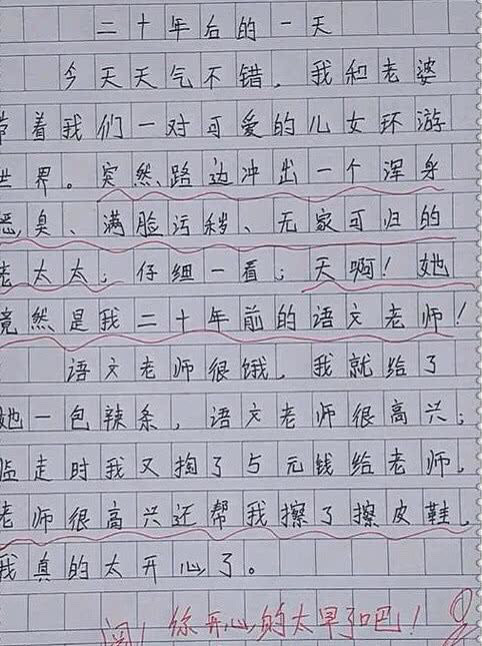 二十年后的一天
今天天气不错，我和老婆
带着我们一对可爱的儿女环游
世界。突然，路边冲出一个浑身
恶臭、满脸污秽、无家可归的
老太太；仔细一看；天啊！她
竟然是我二十年前的语文老师！
语文老师很饿，我就给了
她一包辣条，语文老师很高兴；
临走时我又掏了5元钱给老师，
老师很高兴还帮我擦了擦皮鞋，
我真的太开心了。
阅！你开心的太早了吧！